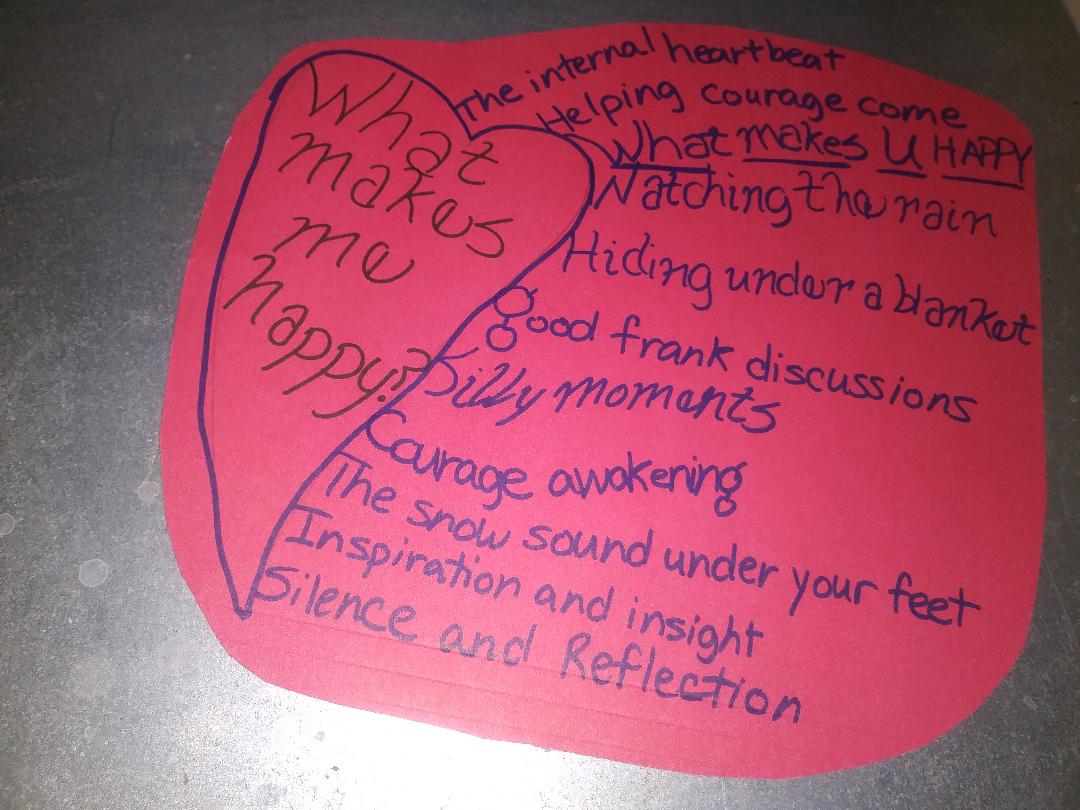 What
makes
me
happy?
The internal heartbeat
Helping courage come
What makes U HAPPY
Watching the rain
Hiding under a blanket
good frank discussions
Silly moments
Courage awakening
The snow sound under your feet
Inspiration and insight
Silence and Reflection